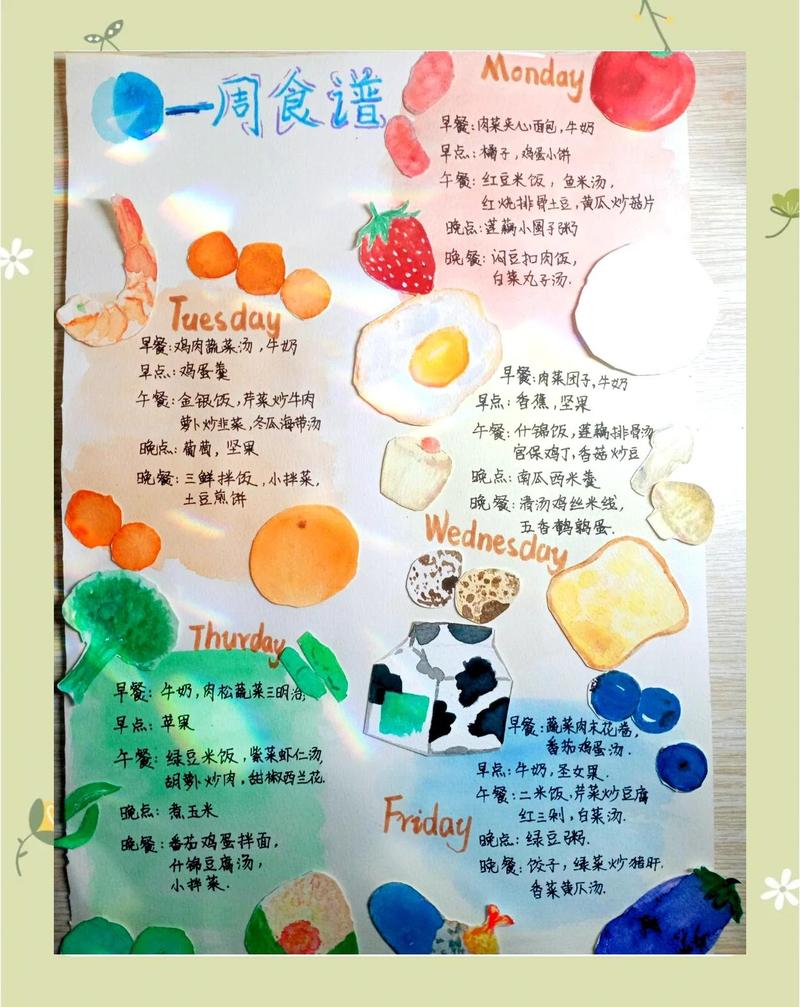 一周食谱
Monday
早餐:肉菜夹心面包,牛奶
早点:橘子,鸡蛋小饼
午餐:红豆米饭,鱼米汤,
红烧排骨土豆,黄瓜炒菇片
晚点:莲藕小圆子粥
晚餐:闷豆扣肉饭,
白菜丸子汤.
Tuesday
早餐:鸡肉蔬菜汤,牛奶
早点:鸡蛋羹
午餐:金银饭,芹菜炒牛肉
萝卜炒韭菜,冬瓜海带汤
晚点:葡萄,坚果
晚餐:三鲜拌饭,小拌菜,
土豆煎饼
早餐:肉菜团子,牛奶
早点:香蕉,坚果
午餐:什锦饭,莲藕排骨汤
宫保鸡丁,香菇炒豆
晚点:南瓜西米羹
晚餐:清汤鸡丝米线,
五香鹌鹑蛋.
Wednesday
Thurday
早餐:牛奶,肉松蔬菜三明治
早点:苹果
午餐:绿豆米饭,紫菜虾仁汤,
胡萝卜炒肉,甜椒西兰花.
晚点:煮玉米
晚餐:番茄鸡蛋拌面,
什锦豆腐汤,
小拌菜.
Friday
早餐:蔬菜肉末花卷,
番茄鸡蛋汤.
早点:牛奶,圣女果.
午餐:二米饭,芹菜炒豆腐
红三剁,白菜汤.
晚点:绿豆粥.
晚餐:饺子,绿菜炒猪肝.
香菜黄瓜汤.